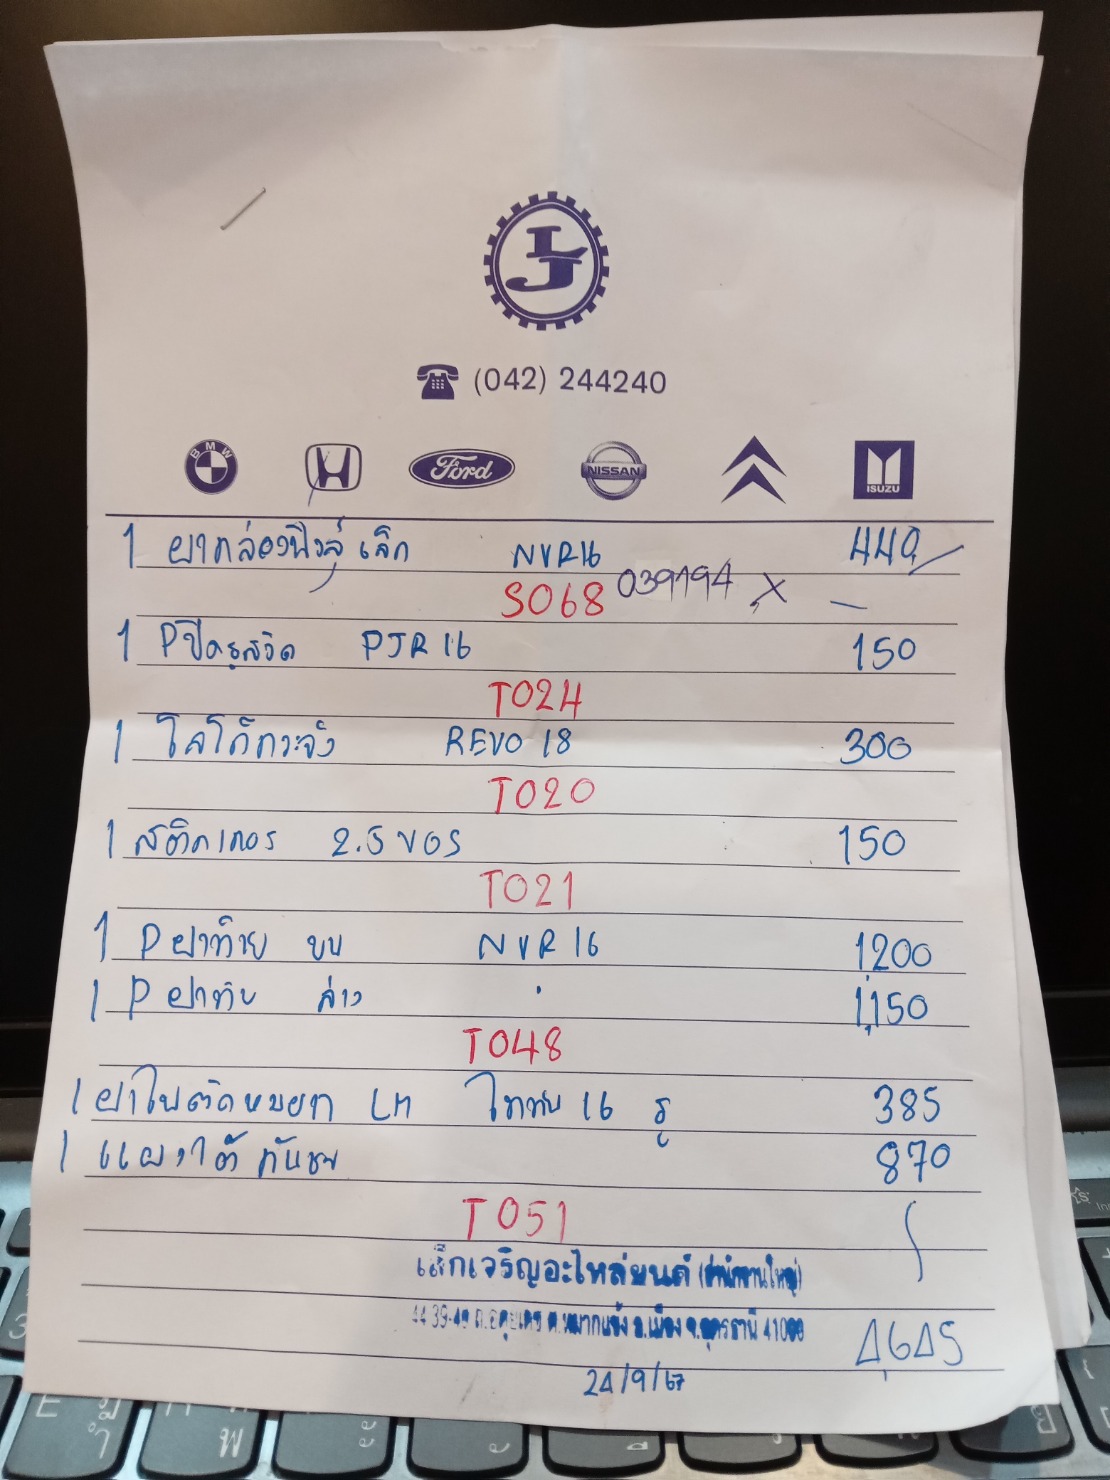 LJ
(042) 244240
BMW Ford NISSAN ISUZU
1 ฝากล่องฟิวส์ เล็ก NVR16 440
S068 039194 X –
1 Pปิดรูสวิต PJR16 150
T024
1 โลโก้กระจัง REVO 18 300
T020
1 สติกเกอร 2.5 VGS 150
T021
1 P ฝาท้าย บน NVR16 1200
1 P ฝาท้าย ล่าง " 1,150
T048
1 ฝาไฟตัดหมอก LH ไททัน 16 รู 385
1 แผงใต้กันชน 870
T051
เล็กเจริญอะไหล่ยนต์ (สำนักงานใหญ่)
ต.หมากแข้ง อ.เมือง จ.อุดรธานี 41000
4,645
24/9/67